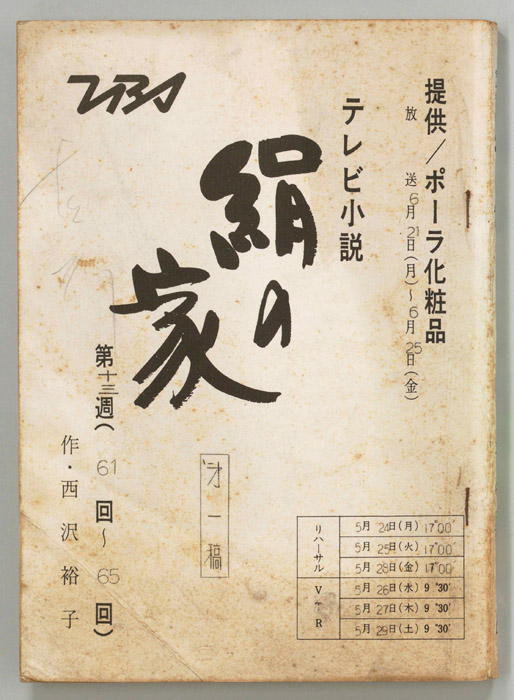 提供／ポーラ化粧品
放送 6月21日(月)〜6月25日(金)
テレビ小説
TBS
絹の家
第十三週(61回〜65回)
作・西沢裕子
才一稿
リハーサル
5月24日(月) 17°00'
5月25日(火) 17°00'
5月28日(金) 17°00'
VTR
5月26日(水) 9°30'
5月27日(木) 9°30'
5月29日(土) 9°30'